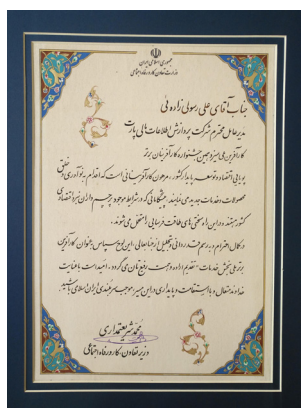 جمهوری اسلامی ایران
وزارت تعاون، کار و رفاه اجتماعی
جناب آقای علی رسولی زاده ئی
مدیرعامل محترم شرکت پردازش اطلاعات مالی پارت
کارآفرین ملی سیزدهمین جشنواره کارآفرینان برتر
پویایی اقتصاد و توسعه پایدار کشور، مرهون کارآفرینانی است که اقدام به نوآوری و خلق
محصولات و خدمات جدید می نمایند. پیشگامانی که در شرایط موجود پرچم داران عرصه اقتصادی
کشور هستند و در این راه سختی های طاقت فرسایی را متحمل می شوند.
در کمال احترام و به رسم قدردانی و تجلیل از جنابعالی، این لوح سپاس به عنوان کارآفرین
برتر ملی بخش خدمات تقدیم داده و دست رفیع تان می گردد. امید است با عنایت
خداوند متعال و با استقامت و پایداری در این مسیر موجب سربلندی ایران اسلامی باشید.
محمد شریعتمداری
وزیر تعاون، کار و رفاه اجتماعی